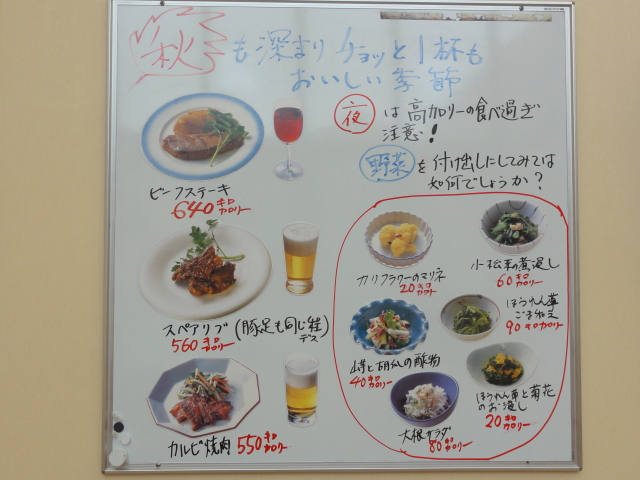 秋も深まり チョッと1杯も
おいしい季節
夜は高カロリーの食べ過ぎ
注意!
野菜を付け出しにしてみては
如何でしょうか?
ビーフステーキ
640キロカロリー
スペアリブ(豚足も同じ様デス)
560キロカロリー
カルビ焼肉 550キロカロリー
カリフラワーのマリネ
20キロカロリー
小松菜の煮浸し
60キロカロリー
ほうれん草
ごま和え
90キロカロリー
胡瓜の酢物
40キロカロリー
ほうれん草と菊花
のお浸し
20キロカロリー
大根サラダ
80キロカロリー